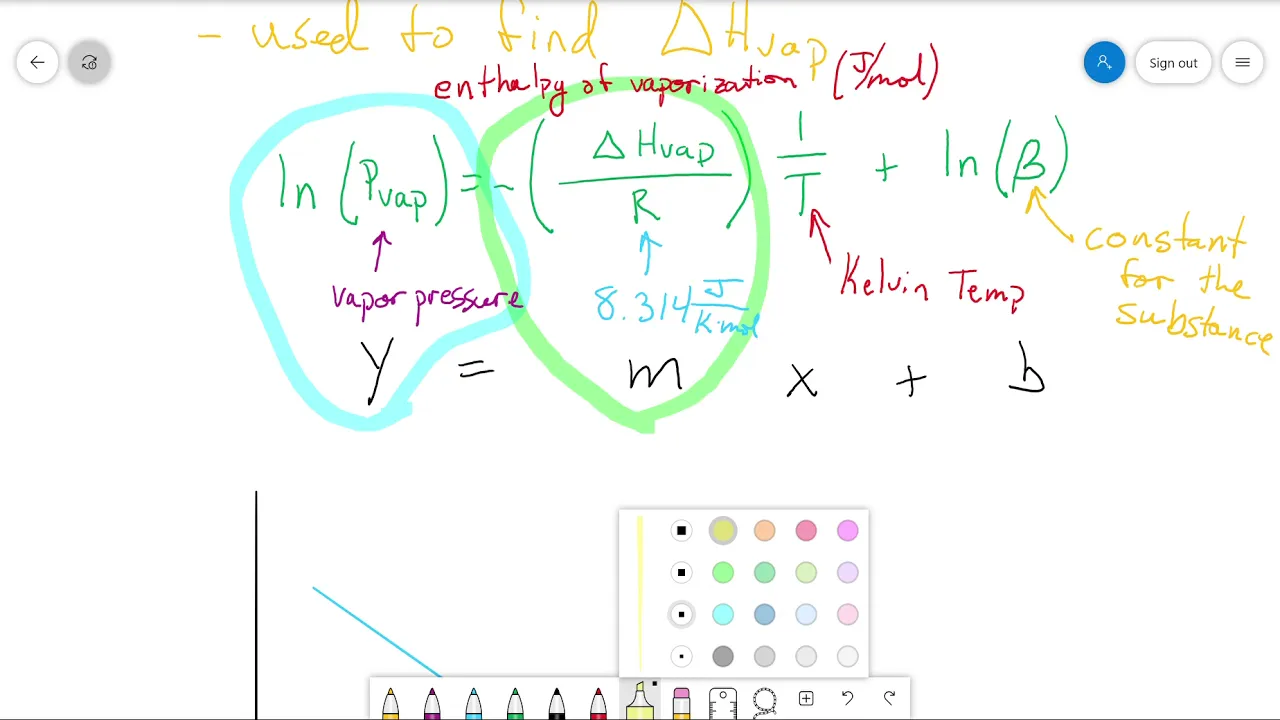 - used to find ΔHvap
enthalpy of vaporization (J/mol)
Sign out
ln (Pvap) = - (ΔHvap / R) 1/T + ln (β)
vapor pressure
8.314 J/K·mol
Kelvin Temp
constant
for the
substance
y = m x + b